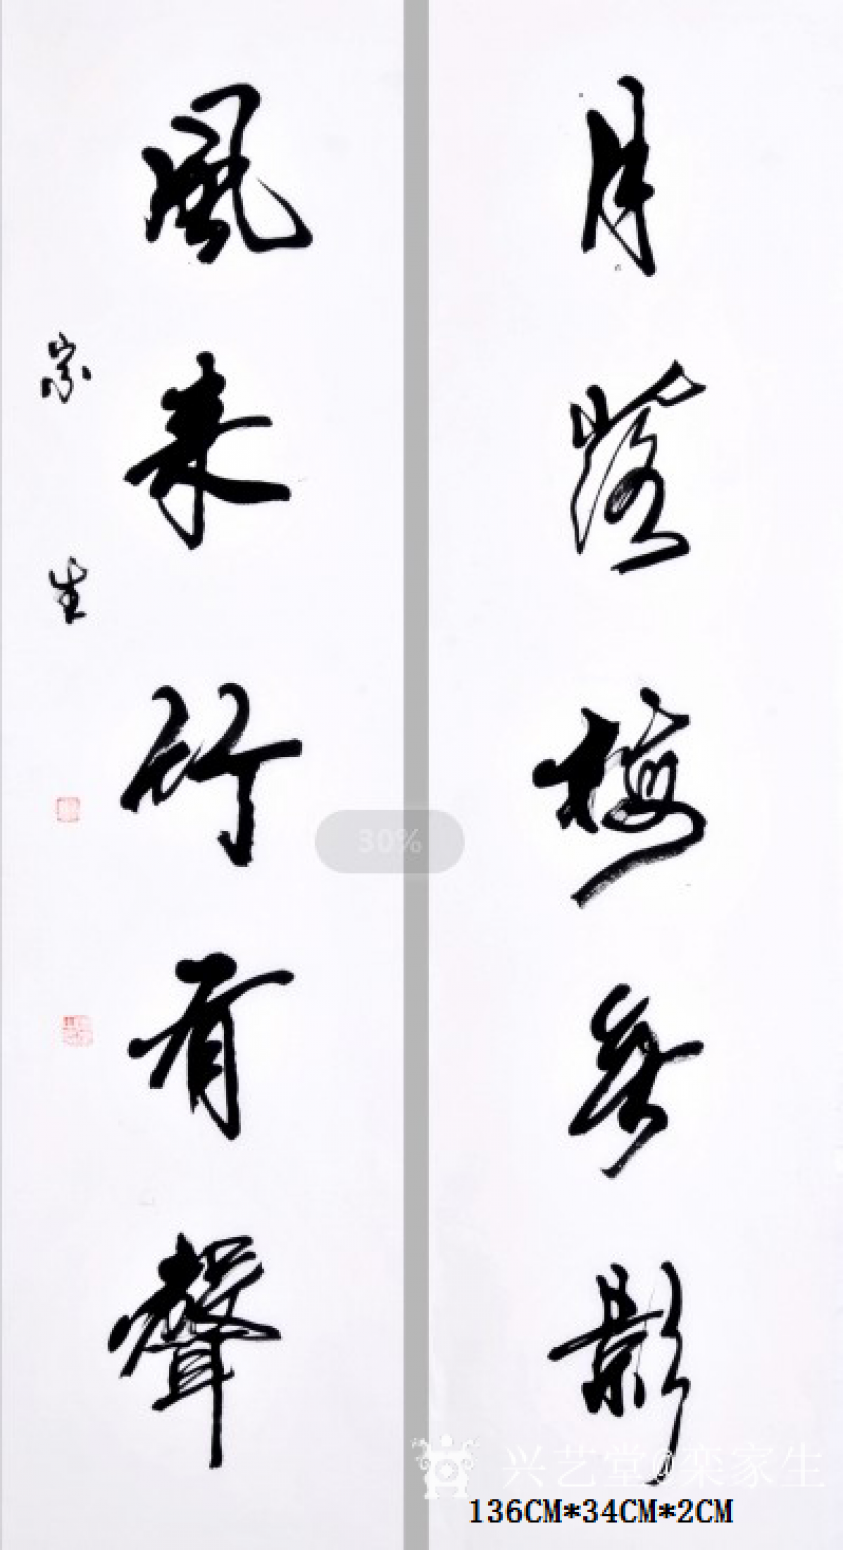 月落梅無影
風来竹有聲
家生
30%
兴艺堂@栾家生
136CM*34CM*2CM